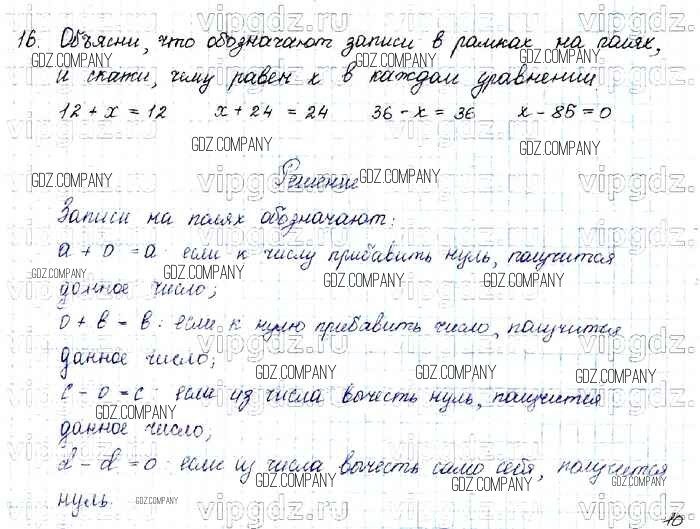 16. Объясни, что обозначают записи в рамках на полях,
и скажи, чему равен x в каждом уравнении
12 + x = 12 x + 24 = 24 36 - x = 36 x - 85 = 0
Решение
Записи на полях обозначают:
a + 0 = a: если к числу прибавить нуль, получится
данное число;
0 + b = b: если к нулю прибавить число, получится
данное число;
c - 0 = c: если из числа вычесть нуль, получится
данное число;
d - d = 0: если из числа вычесть само себя, получится
нуль.
10
vipgdz.ru
GDZ.COMPANY